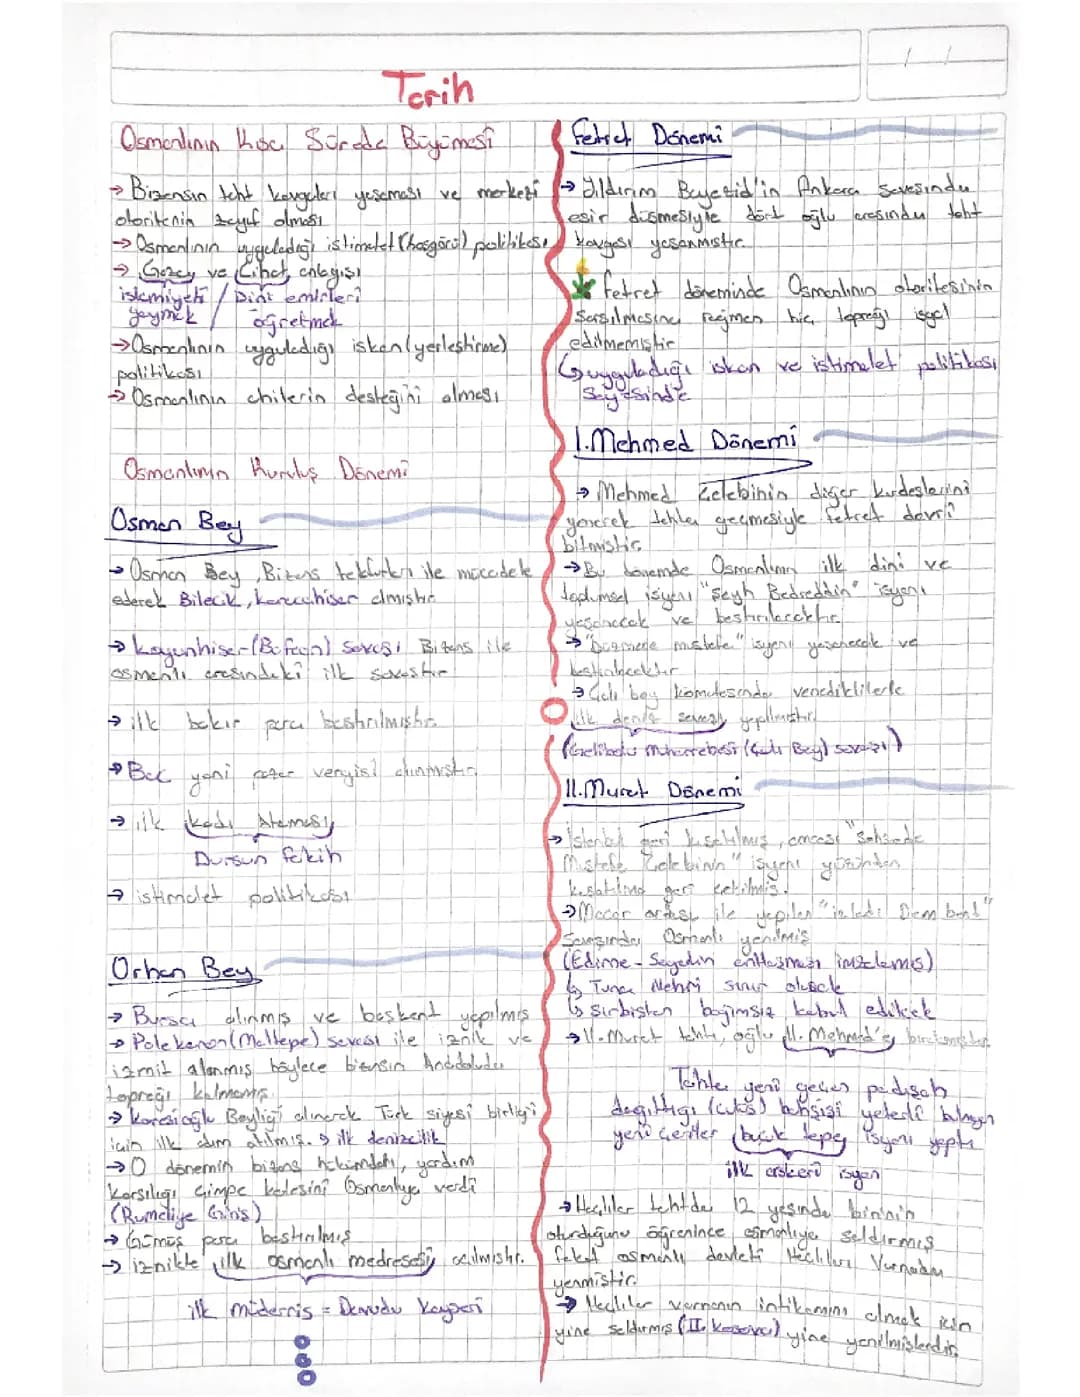 Tarih
Osmanlının Kısa Sürede Büyümesi
→ Bizansın taht kavgaları yaşaması ve merkezi
otoritenin zayıf olması
→ Osmanlının uyguladığı istimalet (hoşgörü) politikası
→ Gaza ve Cihat anlayışı
islamiyeti / Dini emirleri
yaymak / öğretmek
→ Osmanlının uyguladığı iskan (yerleştirme)
politikası
→ Osmanlının ahilerin desteğini alması
Osmanlının Kuruluş Dönemi
Osman Bey
→ Osman Bey, Bizans tekfurları ile mücadele
ederek Bilecik, karacahisar almıştır
→ Koyunhisar (Bafeon) savaşı Bizans ile
osmanlı arasındaki ilk savaştır
→ ilk bakır para bastırılmıştır
→ Bac yani pazar vergisi alınmıştır
→ ilk kadı Ataması
Dursun fakih
→ istimalet politikası
Orhan Bey
→ Bursa alınmış ve başkent yapılmış
→ Palekanon (Maltepe) savaşı ile iznik ve
izmit alanmış böylece bizansın Anadoluda
toprağı kalmamış
→ Karesioğlu Beyliği alınarak Türk siyasi birliği
için ilk adım atılmış. → ilk denizcilik
→ O dönemin bizans hükümdarı, yardım
karşılığı Çimpe kalesini Osmanlıya verdi
(Rumeliye Giriş)
→ Gümüş para bastırılmış
→ iznikte ilk osmanlı medresesi açılmıştır.
ilk müderris = Davudu Kayseri
Fetret Dönemi
→ Yıldırım Bayezid'in Ankara savaşında
esir düşmesiyle dört oğlu arasında taht
kavgası yaşanmıştır
fetret döneminde Osmanlının otoritesinin
sarsılmasına rağmen hiç toprağı işgal
edilmemiştir
↳ uyguladığı iskan ve istimalet politikası
sayesinde
I.Mehmed Dönemi
→ Mehmed Çelebinin diğer kardeşlerini
yenerek tahta geçmesiyle fetret devri
bitmiştir
→ Bu dönemde Osmanlının ilk dini ve
toplumsal isyanı "Şeyh Bedreddin" isyanı
yaşanacak ve bastırılacaktır
→ "Düzmece mustafa" isyanı yaşanacak ve
bastırılacaktır
→ Çalı bey komutasında venediklilerle
ilk deniz savaşı yapılmıştır
(Gelibolu muharebesi (Çalı Bey) savaşı)
II.Murat Dönemi
→ İstanbul geri kuşatılmış, amcası "sahsade
Mustafa Çelebinin" isyanı yüzünden
kuşatılma geri çekilmiş.
→ Macar ordusu ile yapılan "izladi Derbent"
savaşında Osmanlı yenilmiş
(Edirne - Segedin antlaşması imzalamış)
↳ Tuna Nehri sınır olacak
↳ Sırbistan bağımsız kabul edilecek
→ II.Murat tahtı, oğlu II. Mehmed'e bırakmıştır.
Tahta yeni geçen padişah
dağıttığı (cülus) bahşişi yeterli bulmayan
yeniçeriler buçuk tepe isyanı yaptı
ilk askeri isyan
→ Haçlılar tahtda 12 yaşında birinin
oturduğunu öğrenince osmanlıya saldırmış
fakat osmanlı devleti Haçlıları Varnada
yenmiştir.
→ Haçlılar varnanın intikamını almak için
yine saldırmış (II. kosova) yine yenilmişlerdir.